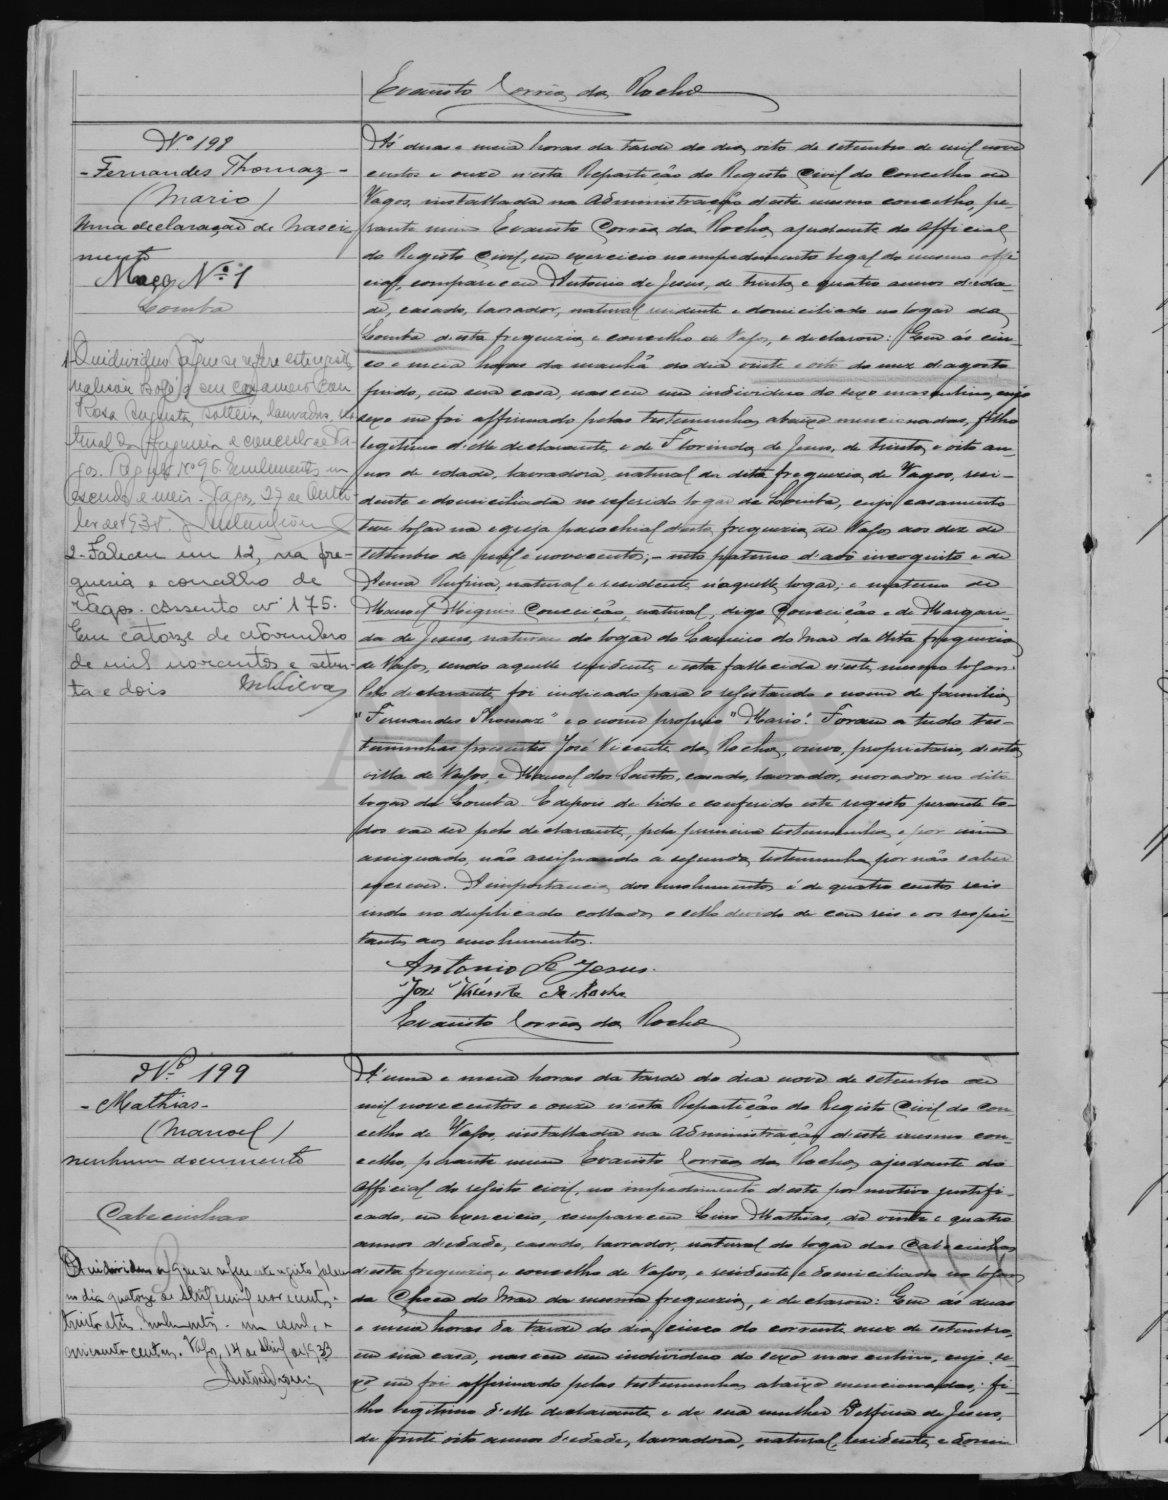 Evaristo Corrêa da Rocha
Nº 198
- Fernandes Thomaz -
(Mario)
Uma declaração de Nasci
mento
Maço Nº 1
Lomba
1- O individuo a que se refere este registo,
realisou hoje o seu casamento com
Rosa Augusta, solteira, lavradora, na-
tural da freguezia e concelho de Va-
gos. Registo Nº 96. Emolumentos um
escudo e meio. Vagos, 27 de Outu-
bro de 193
2- Faleceu em 12, na fre-
guesia e concelho de
Vagos. Assento nº 175.
Em catorze de Novembro
de mil novecentos e seten-
ta e dois
A's duas e meia horas da tarde do dia oito de setembro de mil nove
centos e onze n'esta Repartição do Registo Civil do Concelho de
Vagos, installada na Administração d'este mesmo concelho, pe-
rante mim Evaristo Corrêa da Rocha, ajudante do Official
do Registo Civil, em exercicio no impedimento legal do mesmo offi
cial, compareceu Antonio de Jesus, de trinta e quatro annos d'eda-
de, casado, lavrador, natural residente e domiciliado no logar da
Lomba d'esta freguezia e concelho de Vagos, e declarou: Que ás cin-
co e meia horas da manhã do dia vinte e oito do mez d'agosto
findo, em sua casa, nasceu um individuo do sexo masculino, cujo
sexo me foi affirmado pelas testemunhas abaixo mencionadas, filho
legitimo d'elle declarante, e de Florinda de Jesus, de trinta e oito an-
nos de edade, lavradora, natural da dita freguezia de Vagos, resi-
dente e domiciliada no referido logar da Lomba, cujo casamento
teve logar na egreja parochial d'esta freguezia de Vagos aos dez de
setembro de mil e novecentos; - neto paterno d'avô incognito e de
Anna Rufina, natural e residente n'aquelle logar; e materno de
Manoel Migueis Conceição, natural, digo Conceição e de Margari-
da de Jesus, naturaes do logar do da dita freguezia
de Vagos, sendo aquelle residente e esta fallecida n'este mesmo logar.
Pelo declarante foi indicado para o registando o nome de familia
"Fernandes Thomaz" e o nome proprio "Mario". Foram a tudo tes-
temunhas presentes José Vicente da Rocha, viuvo, proprietario, d'esta
villa de Vagos, e Manoel dos Santos, casado, lavrador, morador no dito
logar da Lomba. E depois de lido e conferido este registo perante to-
dos vae ser pelo declarante, pela primeira testemunha e por mim
assignado, não assignando a segunda testemunha por não saber
escrever. A importancia dos emolumentos é de quatro centos reis
indo no duplicado collado o sello devido de cem reis e os respei-
tantes aos emolumentos.
Antonio de Jesus.
José Vicente da Rocha
Evaristo Corrêa da Rocha
Nº 199
- Mathias -
(Manoel)
nenhum documento
Cabecinhas
O individuo a que se refere este registo faleceu
no dia quatorze de Abril mil novecentos
trinta e três. Emolumentos - um escudo e
cincoenta centavos. Vagos, 14 de Abril de 1933
A' uma e meia horas da tarde do dia nove de setembro de
mil novecentos e onze n'esta Repartição do Registo Civil do Con
celho de Vagos, installada na Administração d'este mesmo con-
celho, perante mim Evaristo Corrêa da Rocha, ajudante do
Official do registo civil, no impedimento d'este por motivo justifi-
cado, em exercicio, compareceu Mathias, de vinte e quatro
annos d'edade, casado, lavrador, natural do logar das Cabecinhas
d'esta freguezia e concelho de Vagos, e residente e domiciliado no logar
da do Mar da mesma freguezia, e declarou: Que ás duas
e meia horas da tarde do dia cinco do corrente mez de setembro,
em sua casa, nasceu um individuo do sexo masculino, cujo se-
xo me foi affirmado pelas testemunhas abaixo mencionadas; fi-
lho legitimo d'elle declarante e de sua mulher Delfina de Jesus,
de vinte oito annos d'edade, lavradora, natural, residente e domi